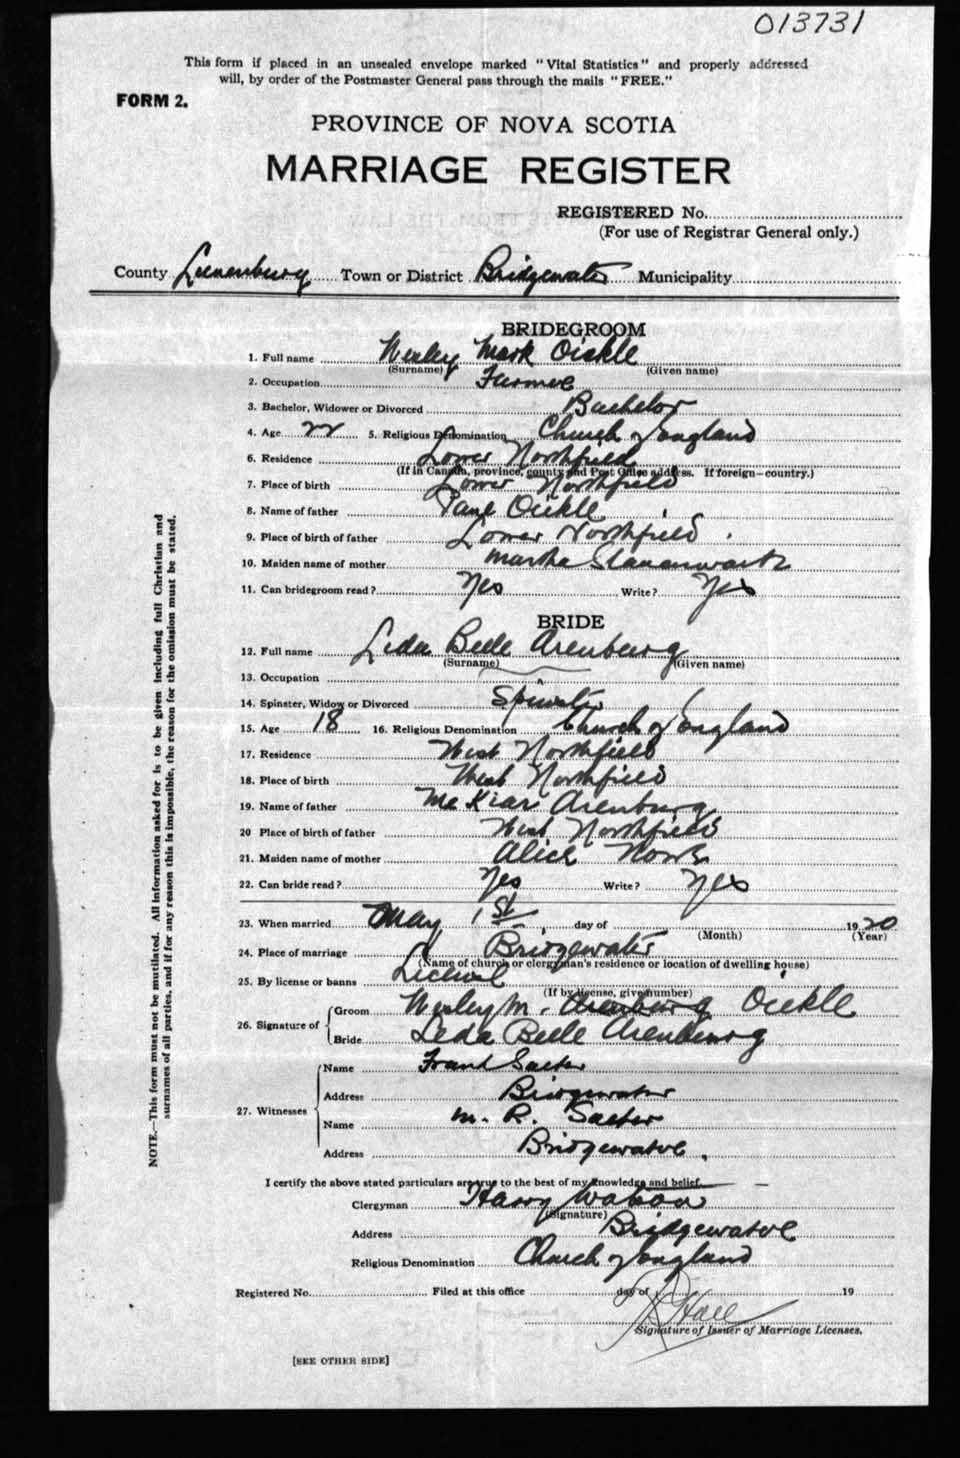 013731
This form if placed in an unsealed envelope marked "Vital Statistics" and properly addressed
will, by order of the Postmaster General pass through the mails "FREE."
FORM 2.
PROVINCE OF NOVA SCOTIA
MARRIAGE REGISTER
REGISTERED No.
(For use of Registrar General only.)
County Lunenburg Town or District Bridgewater Municipality
BRIDEGROOM
1. Full name Wesley Mark Oickle
(Surname) (Given name)
2. Occupation Farmer
3. Bachelor, Widower or Divorced Bachelor
4. Age 22 5. Religious Denomination Church of England
6. Residence Lower Northfield
(If in Canada, province, county and Post Office address. If foreign—country.)
7. Place of birth Lower Northfield
8. Name of father Paul Oickle
9. Place of birth of father Lower Northfield
10. Maiden name of mother Martha
11. Can bridegroom read? Yes Write? Yes
BRIDE
12. Full name Leda Belle Arenburg
(Surname) (Given name)
13. Occupation
14. Spinster, Widow or Divorced Spinster
15. Age 18 16. Religious Denomination Church of England
17. Residence West Northfield
18. Place of birth West Northfield
19. Name of father Arenburg
20 Place of birth of father West Northfield
21. Maiden name of mother Alice
22. Can bride read? Yes Write? Yes
23. When married May 1st day of 1920
(Month) (Year)
24. Place of marriage Bridgewater
(Name of church or clergyman's residence or location of dwelling house)
25. By license or banns
(If by license, give number)
26. Signature of Groom Wesley M. Arenburg Oickle
Bride Leda Belle Arenburg
27. Witnesses Name Frank Sarty
Address Bridgewater
Name M. R. Sarty
Address Bridgewater
I certify the above stated particulars are true to the best of my knowledge and belief.
Clergyman Harry Watson
(Signature)
Address Bridgewater
Religious Denomination Church of England
Registered No. Filed at this office day of 19
Hall
Signature of Issuer of Marriage Licenses.
[SEE OTHER SIDE]
NOTE.—This form must not be mutilated. All information asked for is to be given including full Christian and
surnames of all parties, and if for any reason this is impossible, the reason for the omission must be stated.